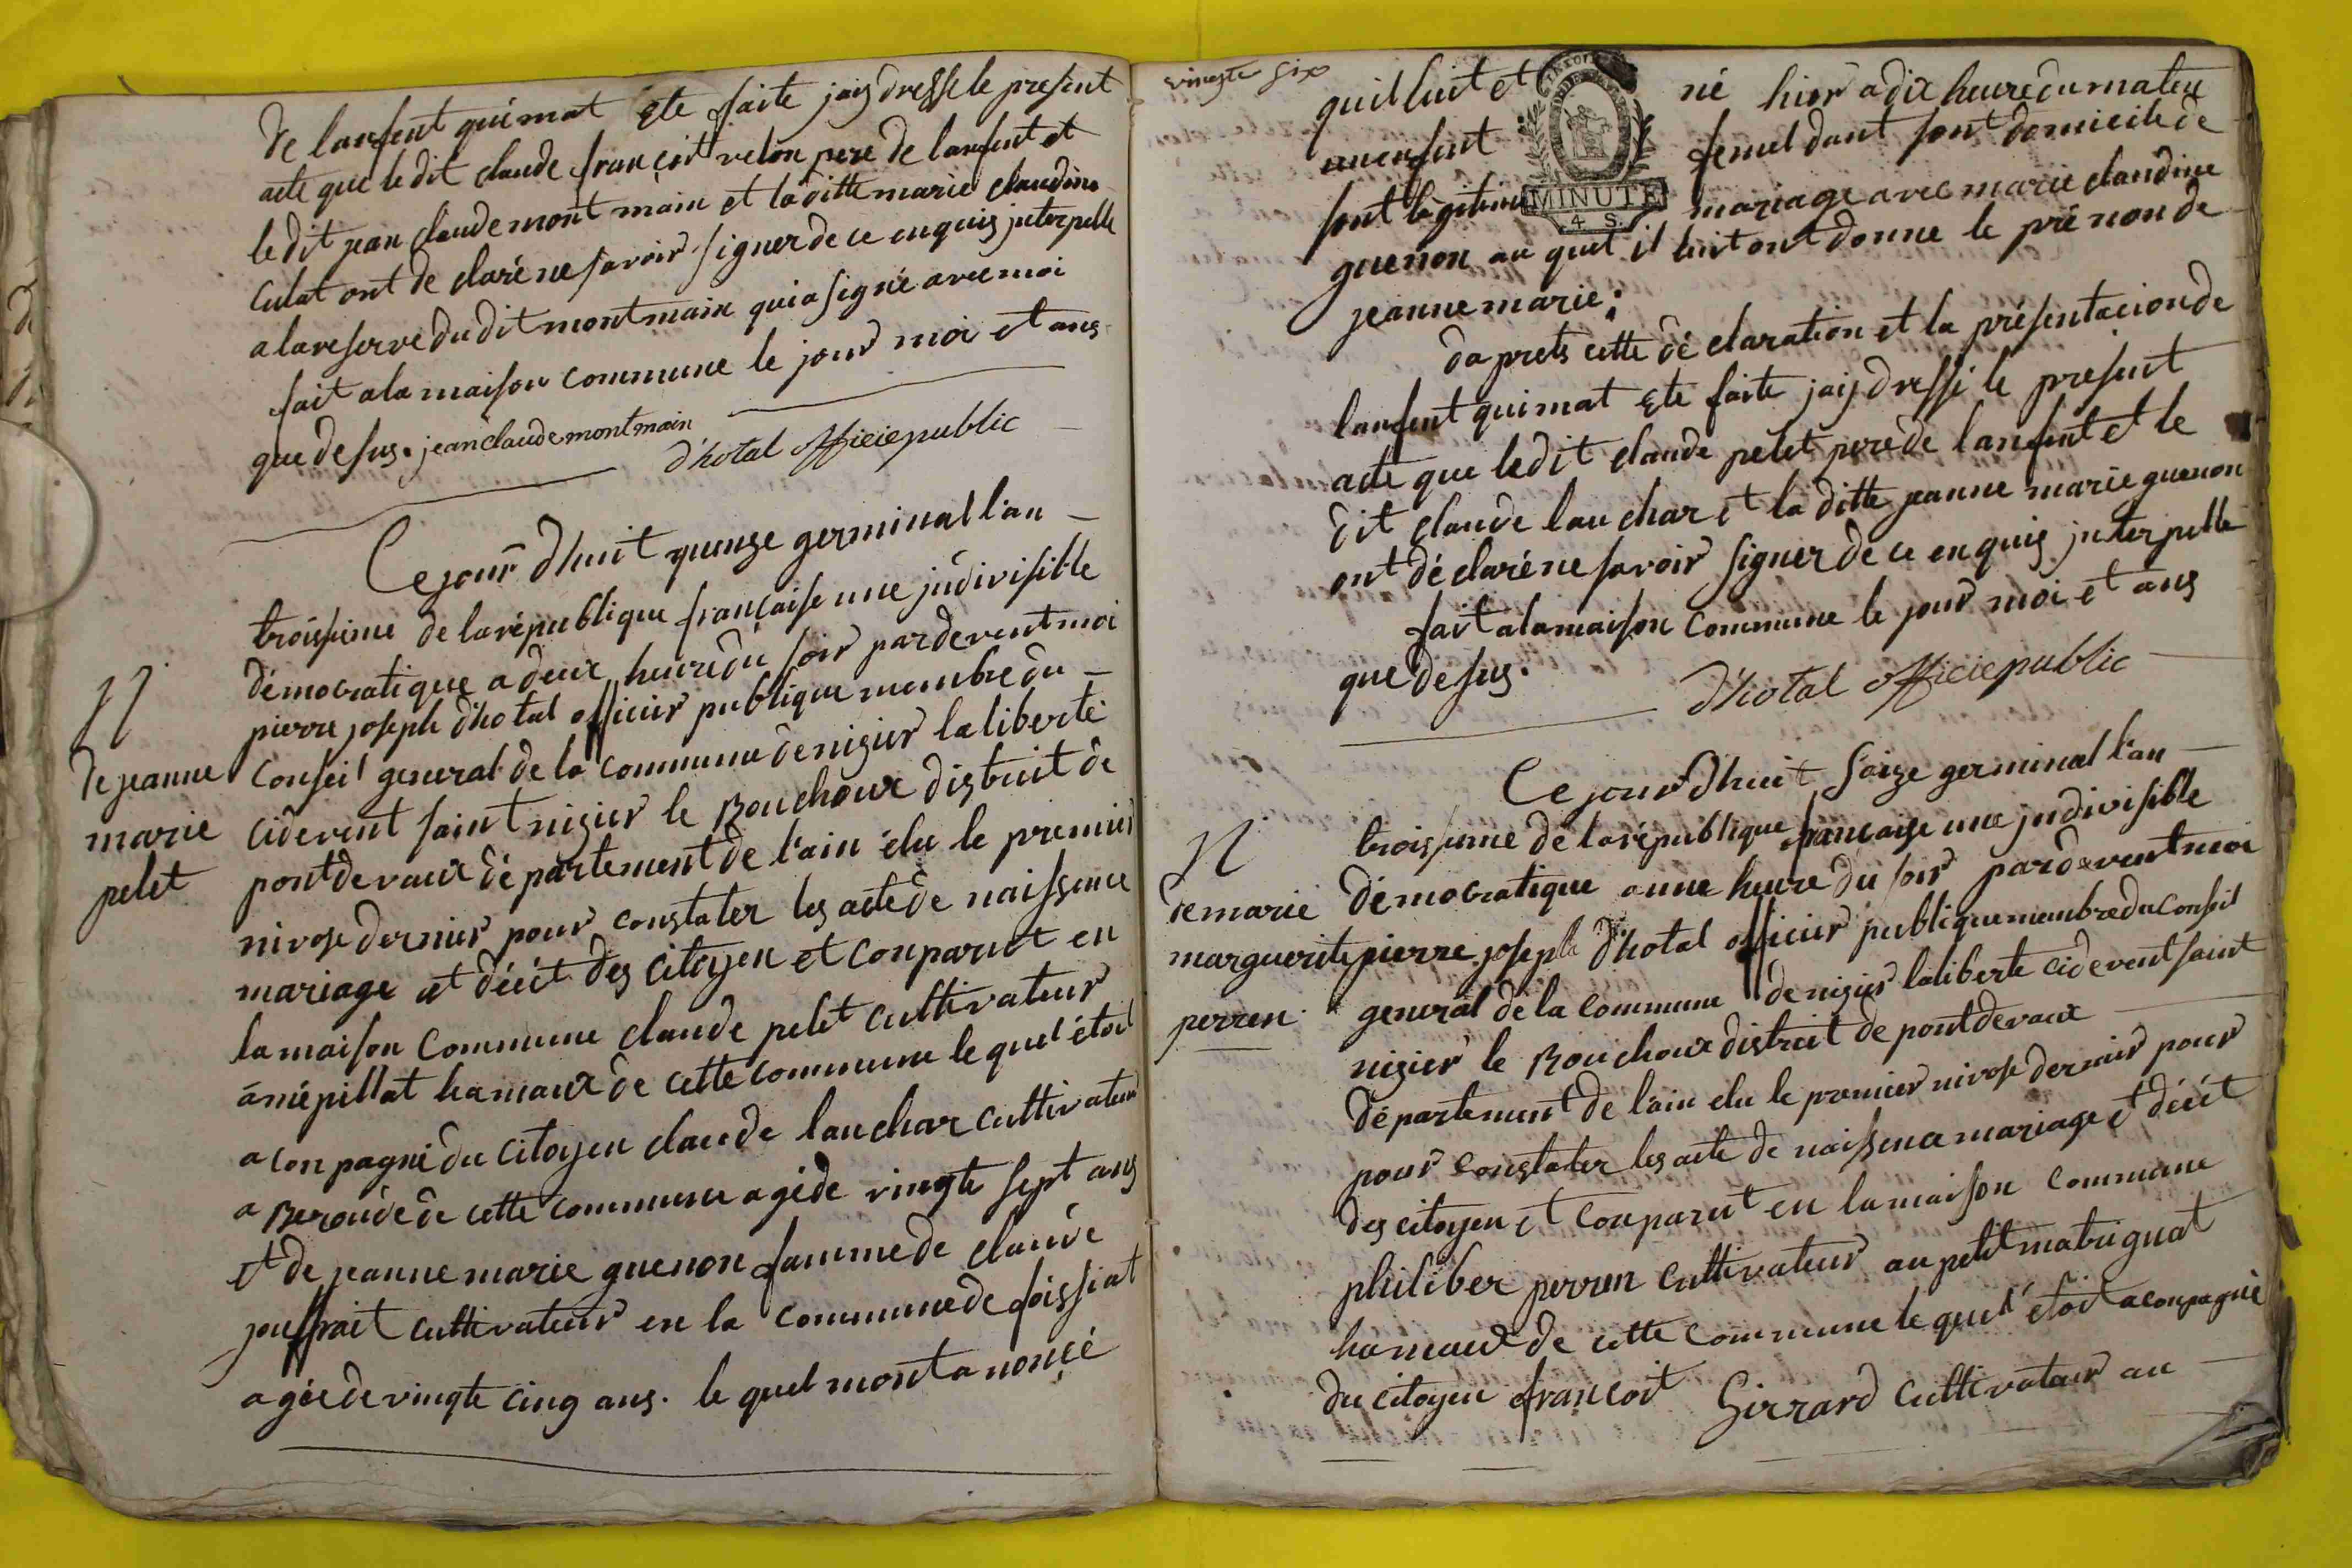 de lanfent qui mat ete faite jais dressé le present
acte que le dit claude françoit velon pere de lanfent et
le dit jean claude mont main et la ditte marie claudine
culat ont de claré ne savoir signer de ce enquis jnterpelle
a la reserve du dit montmain qui a signé avec moi
fait a la maison commune le jour moi et ans
que desus. jean claude montmain
d'hotal officie public
Ce jour d'huit quenze germinal l'an
troissieme de la république française une jndivisible
démocratique a deux heure du soir par devent moi
pierre joseph d'hotal officier publique membre du
Conseil general de la commune de nisier la liberté
cidevent saint nisier le Bouchoux district de
pontdevaux département de l'ain élu le premier
nivose dernier pour constater les acte de naissence
mariage et décét des citoyen et conparut en
la maison commune claude pelet cultivateur
a mépillat hamaux de cette commune le quel étoit
a conpagné du citoyen claude lauchar cultivateur
a Beroude de cette commune agé de vingte sept ans
et de jeanne marie guenon famme de claude
jouffrait cultivateur en la commune de foissiat
agée de vingte cinq ans. le quel mont anoncé
N
de jeanne
marie
pelet
vingte six
quil luit et né hier a dix heure du mateu
un enfent femel dant sont domicile de
sont légitime mariage avec marie claudine
guenon au quel il luit ont donne le prénon de
jeanne marie;
da prets cette dé claration et la présentacion de
lanfent qui mat ete faite jais dressé le present
acte que le dit claude pelet pere de lanfent et le
dit claude lauchar et la ditte jeanne marie guenon
ont déclaré ne savoir signer de ce enquis jnterpelle
fait a la maison commune le jour moi et ans
que desus.
d'hotal officie public
MINUTE
4 S.
Ce jour d'huit saize germinal l'an
troissieme de la république francaise une jndivisible
démocratique a une heure du soir par devent moi
pierre joseph d'hotal officier publique membre du Conseil
general de la commune de nisier la liberte cidevent saint
nisier le Bouchoux district de pontdevaux
département de l'ain elu le premier nivose dernier pour
pour constater les acte de naissence mariage et décét
des citoyen et conparut en la maison commune
philiber perren cultivateur au petit matrignat
hameaux de cette commune le quel étoit aconpagné
du citoyen françoit Girrard cultivateur au
N
de marie
marguerite
perren